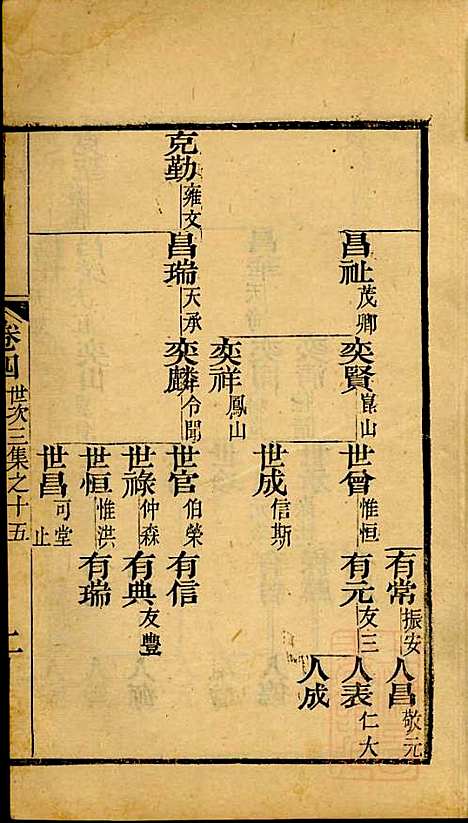 有常 振安
人昌 敬元
昌祉 茂卿
奕賢 崑山
世曾 惟恒
有元 友三
人表 仁大
人成
世成 信斯
奕祥 鳳山
克勤 雍文
昌瑞 天承
奕麟 令聞
世官 伯榮
有信
世祿 仲森
有典 友豐
世恒 惟洪
有瑞
世昌 可堂 止
卷四 世次三集之十五